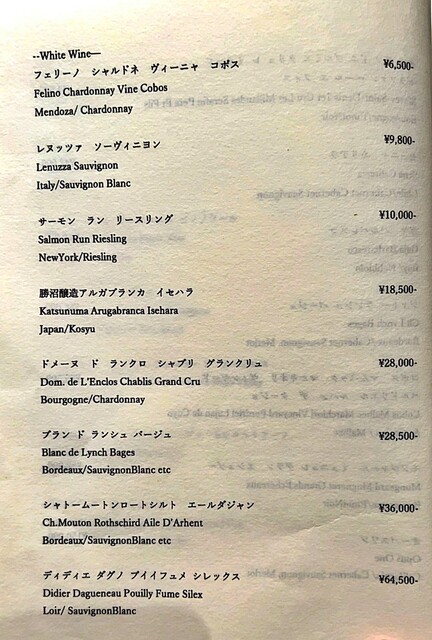 --White Wine—
フェリーノ　シャルドネ　ヴィーニャ　コボス ¥6,500-
Felino Chardonnay Vine Cobos
Mendoza/ Chardonnay
レヌッツァ　ソーヴィニヨン ¥9,800-
Lenuzza Sauvignon
Italy/Sauvignon Blanc
サーモン　ラン　リースリング ¥10,000-
Salmon Run Riesling
NewYork/Riesling
勝沼醸造アルガブランカ　イセハラ ¥18,500-
Katsunuma Arugabranca Isehara
Japan/Kosyu
ドメーヌ　ド　ランクロ　シャブリ　グランクリュ ¥28,000-
Dom. de L'Enclos Chablis Grand Cru
Bourgogne/Chardonnay
ブラン ド ランシュ バージュ ¥28,500-
Blanc de Lynch Bages
Bordeaux/SauvignonBlanc etc
シャトームートンロートシルト　エールダジャン ¥36,000-
Ch.Mouton Rothschird Aile D'Arhent
Bordeaux/SauvignonBlanc etc
ディディエ ダグノ プイイフュメ シレックス ¥64,500-
Didier Dagueneau Pouilly Fume Silex
Loir/ SauvignonBlanc